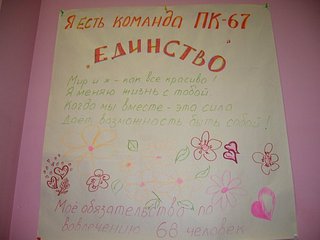 Я есть команда ПК-67
"ЕДИНСТВО"
Мир и я - как все красиво!
Я меняю жизнь с тобой.
Когда мы вместе - эта сила
Дает возможность быть собой!
Мое обязательство по
вовлечению 68 человек